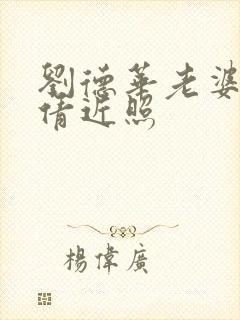 劉德華老婆
倩近照
楊偉廣